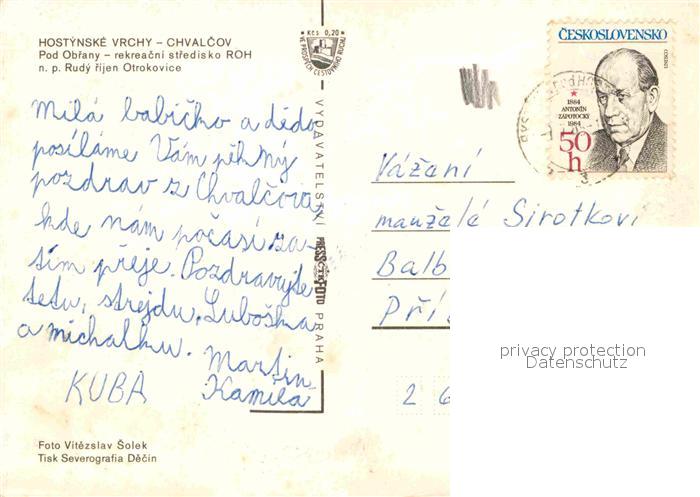 HOSTÝNSKÉ VRCHY – CHVALČOV
Pod Obřany – rekreační středisko ROH
n. p. Rudý říjen Otrokovice
Kčs 0,20
VE PROSPĚCH CESTOVNÍHO RUCHU
Milá babičko a dědo
posíláme Vám pěkný
pozdrav z Chvalčova,
kde nám počasí za-
tím přeje. Pozdravujte
tetu, strejdu, Luboška
a michalku. Martin
KUBA Kamila
Foto Vítězslav Šolek
Tisk Severografia Děčín
VYDAVATELSTVÍ PRESSFOTO PRAHA
ČESKOSLOVENSKO
1884
ANTONÍN
ZÁPOTOCKÝ
1984
50
h
Vážaní
manželé Sirotkovi
Balb
Pří
2 6
privacy protection
Datenschutz